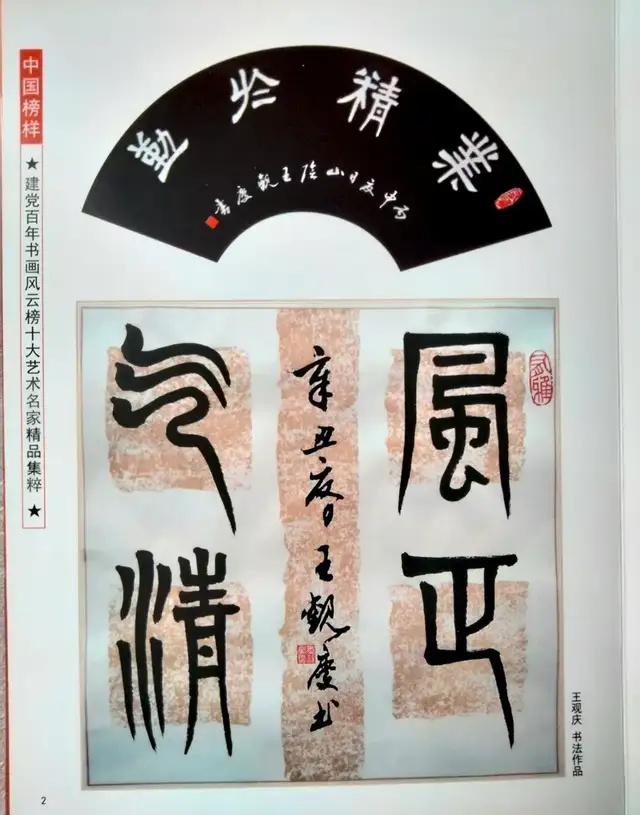 中国榜样
★ 建党百年书画风云榜十大艺术名家精品集粹 ★
業精於勤
丙申夏日山陰王觀慶書
風正
气清
辛丑夏日王觀慶书
王观庆 书法作品
2